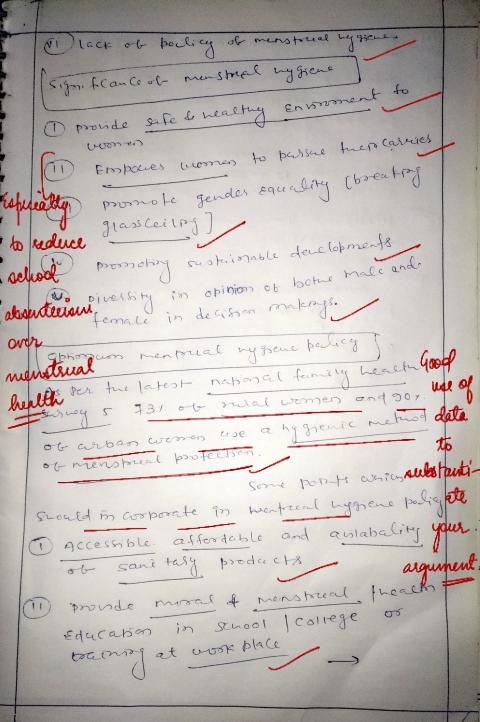 VI lack of policy of menstrual hygiene.
Significance of menstrual hygiene
I provide safe & healthy Enviroment to
women
II Empower women to pursue their carries
promote gender equality (breaking
glassceiling]
IV promoting sustainable developments
V. Diversity in opinion of both male and
female in decision makings.
Especially
to reduce
school
absenteeism
over
menstrual
health
menstrual hygiene policy
As per the latest national family health
survey 5 73% of rural women and 90%
of urban women use a hygienic method
of menstrual protection.
Good
use of
data
to
substanti-
ate
your
argument.
Some points which
should in corporate in menstrual hygiene policy
I Accessible affordable and avilabality
of sanitary products
II provide moral & menstrual /health
Education in school / college or
training at work place
→